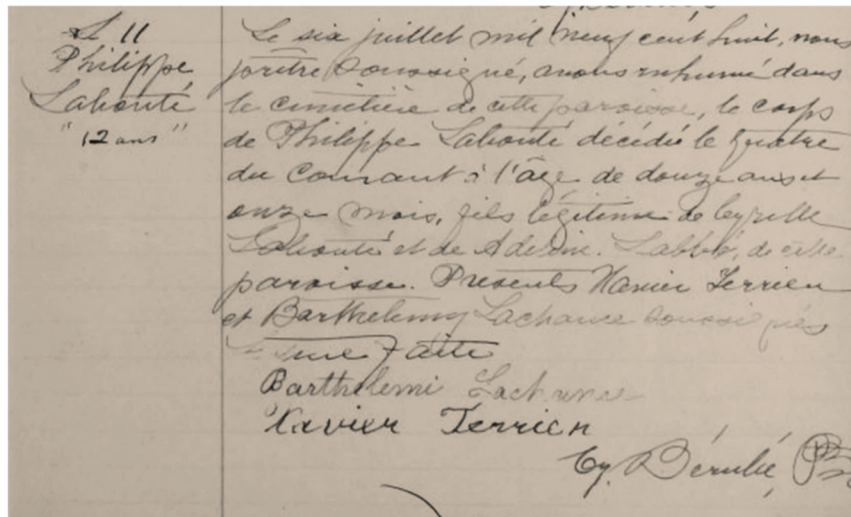 S 11
Philippe
Labonté
"12 ans"
Le six juillet mil neuf cent huit, nous
prêtre soussigné, avons inhumé dans
le cimetière de cette paroisse, le corps
de Philippe Labonté décédé le quatre
du courant à l'âge de douze ans et
onze mois, fils légitime de Cyrille
Labonté et de Adeline Labbé, de cette
paroisse. Presents Xavier Terrien
et Barthelemy Lachance soussignés
faite
Barthelemi Lachance
Xavier Terrien
Cy. Bérubé, Ptre